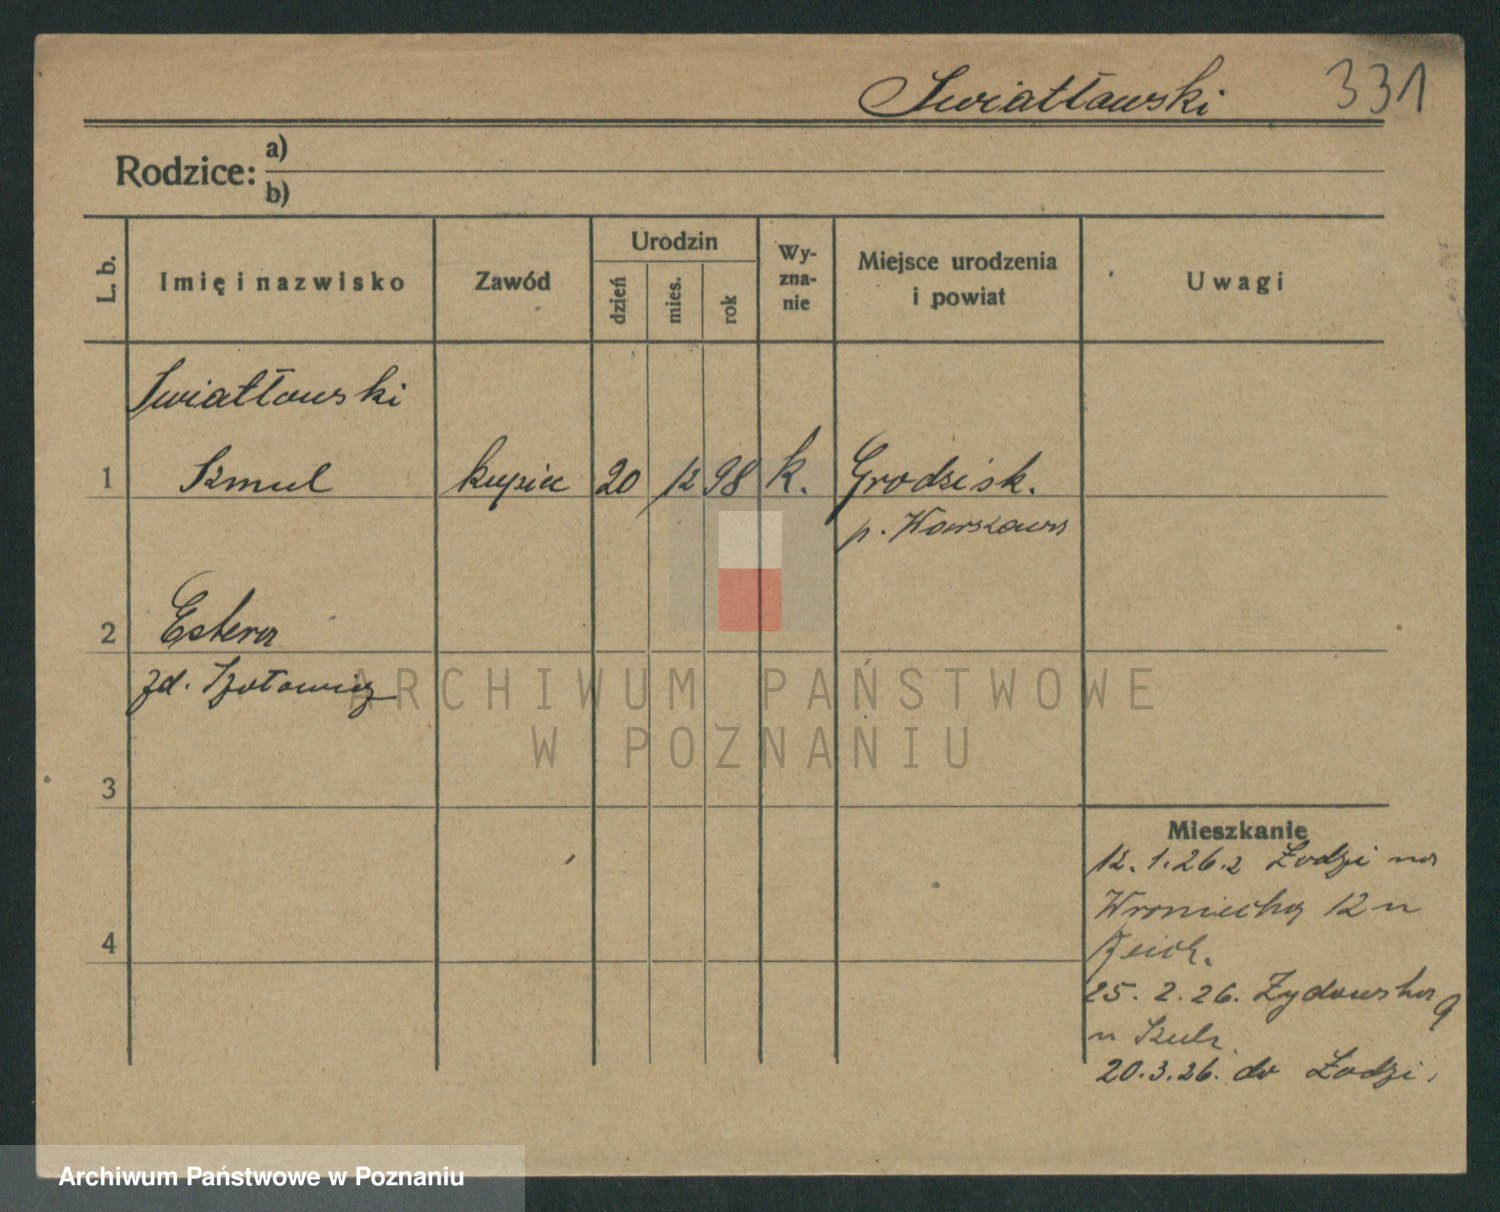 Swiatławski 331
Rodzice: a)
b)
L. b. Imię i nazwisko Zawód Urodzin dzień mies. rok Wy-zna-nie Miejsce urodzenia i powiat Uwagi
Swiatławski
1 Szmul kupiec 20 12 98 k. Grodzisk.
p. Warszawa
2 Estera
zd.
3
4
Mieszkanie
12.1.26. z Łodzi na
12 u
25.2.26. Zydowska 9
u
20.3.26. do Łodzi.
ARCHIWUM PAŃSTWOWE
W POZNANIU
Archiwum Państwowe w Poznaniu